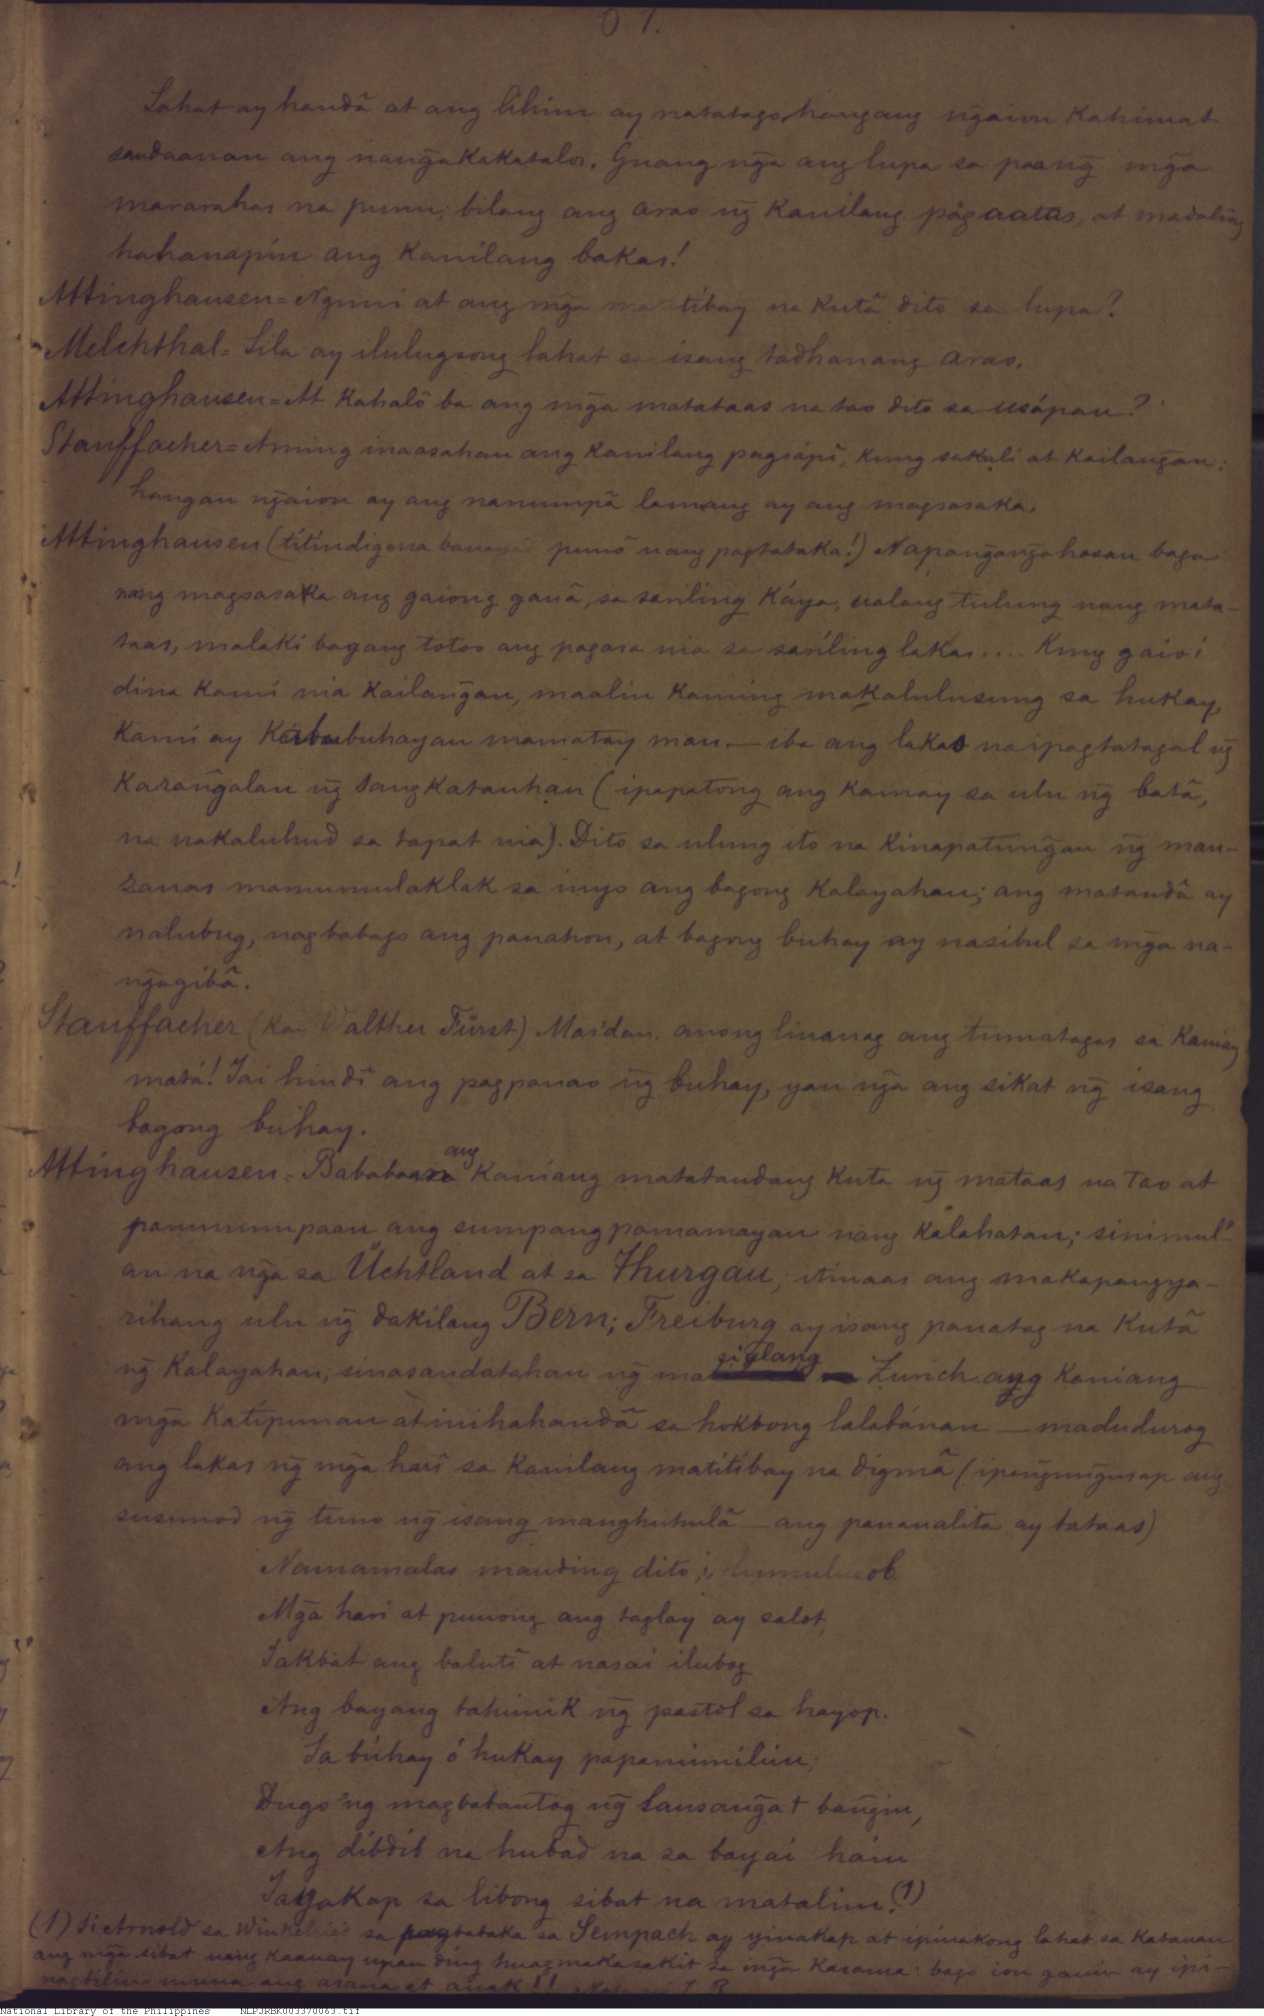 Lahat ay handã at ang lihim ay natatago, hangang ng̃aion kahimat
sandaanan ang nang̃akakatalos. Guang ng̃a ang lupa sa paa ng̃ mg̃a
mararahas na punu; bilang ang arao ng̃ kanilang pág aatas, at madaling
hahanapin ang kanilang bakas!
Attinghausen = Nguni at ang mg̃a matitibay na kutã dito sa lupa?
Melchthal = Sila ay ilulugsong lahat sa isang tadhanang arao.
Attinghausen = At kahalò ba ang mg̃a matataas na tao dito sa usápan?
Stauffacher = Aming inaasahan ang kanilang pagsápì, kung sakali at kailang̃an;
hangan ng̃aion ay ang nanumpã lamang ay ang magsasaka.
Attinghausen (titindig na punõ nang pagtataka!) Napang̃ang̃ahasan baga
nang magsasaka ang gaiong gauã, sa sariling káya, ualang tulung nang mata-
taas, malaki bagang totoo ang pagasa nia sa sariling lakas.... Kung gaioi
dina kami nia kailang̃an, maaliu kaming makalulusung sa hukay,
Kami ay kabubuhayan mamatay man — iba ang lakas na ipagtatagal ng̃
karang̃alan ng̃ sangkatauhan (ipapatong ang kamay sa ulu ng̃ batã,
na nakaluhud sa tapat nia). Dito sa ulung ito na kinapatung̃an ng̃ man-
sanas mamumulaklak sa inyo ang bagong kalayahan; ang matandã ay
nalubug, nagbabago ang panahon, at bagong buhay ay nasibul sa mg̃a na-
ng̃agibã.
Stauffacher (kay Valther Fürst) Masdan anong linanag ang tumatagos sa kaniang
matá! Iai hindĩ ang pagpanao ng̃ buhay, yan ng̃a ang sikat ng̃ isang
bagong buhay.
Attinghausen = Bababa ang kaniang matatandang kuta ng̃ mataas na tao at
panunumpaan ang sumpang pamamayan nang kálahatan; sinimul-
an na ng̃a sa Üchtland at sa Thurgau; itinaas ang makapangya-
rihang ulu ng̃ dakilang Bern; Freiburg ay isang panatag na kutã
ng̃ kalayahan; sinasandatahan ng̃ ma siglang Zurich ang kaniang
mg̃a katipunan at inihahandã sa hokbong lalabánan — madudurog
ang lakas ng̃ mg̃a harĩ sa kanilang matitibay na digmã (ipang̃ung̃usap ang
susunod ng̃ tuno ng̃ isang manghuhulã — ang pananalita ay tataas)
Namamalas manding dito
Mg̃a hari at punong ang taglay ay salot,
Sakbat ang balutĩ at nasai ilubog
Ang bayang tahimik ng̃ pastol sa hayop.
Sa búhay ó hukay papanimilin;
Dugo'ng magtatantog ng̃ lansang̃a't bang̃in,
Ang dibdib na hubad na sa bayai hain
Iayakap sa libong sibat na matalim.(1)
(1) Si Arnold sa Winkelried sa pagbataka sa Sempach ay yinakap at ipinakong lahat sa katauan
ang mg̃a sibat nang kaauay upan ding huag makasakit sa mg̃a kasama: bago ion gauin ay ipi-
nagbilin muna ang asaua at anak!!
National Library of the Philippines NLPJRBK003370063.tif